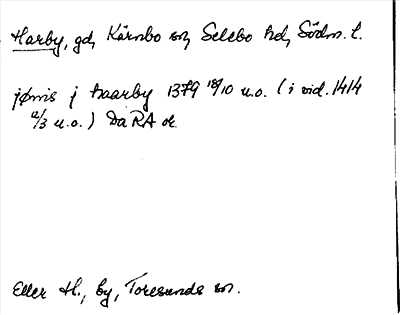 Harby, gd, Kärnbo sn, Selebo hd, Södm. l.
jønis j haarby 1379 18/10 u.o. (i vid. 1414
2/3 u.o.) DaRA or.
Eller H., by, Toresunds sn.